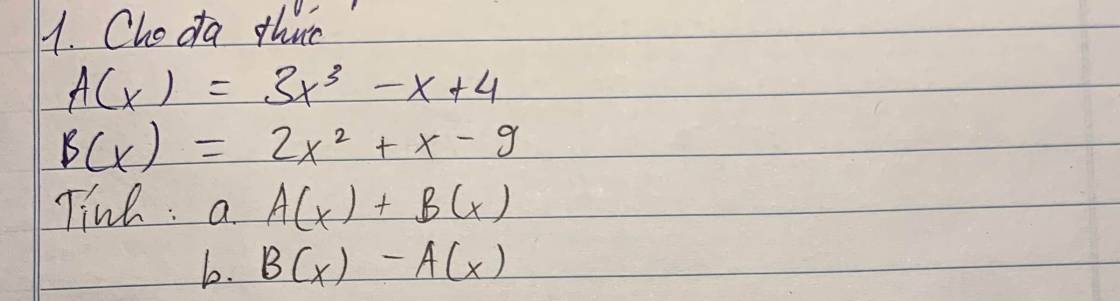 1. Cho đa thức
A(x) = 3x³ - x + 4
B(x) = 2x² + x - 9
Tính : a. A(x) + B(x)
b. B(x) - A(x)